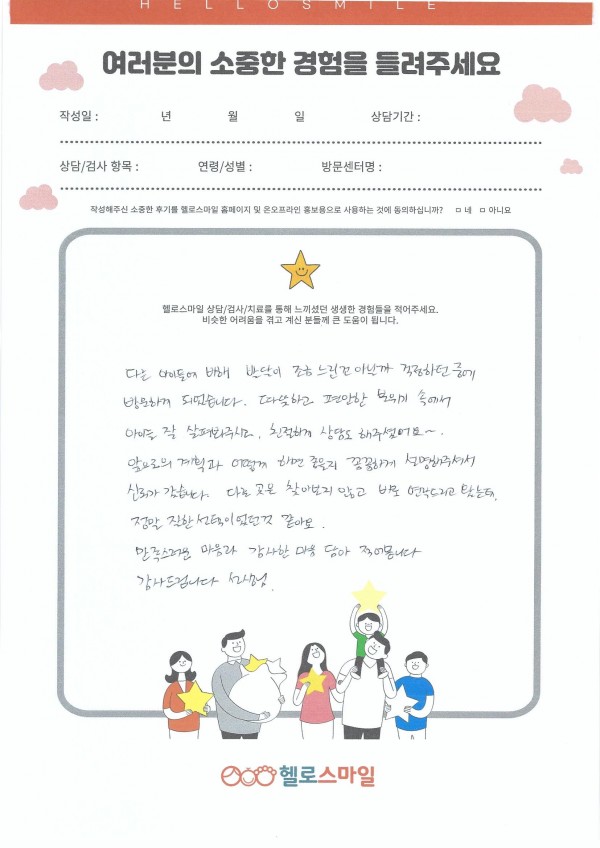 HELLOSMILE
여러분의 소중한 경험을 들려주세요
작성일 : 년 월 일 상담기간 :
상담/검사 항목 : 연령/성별 : 방문센터명 :
작성해주신 소중한 후기를 헬로스마일 홈페이지 및 온오프라인 홍보용으로 사용하는 것에 동의하십니까? ㅁ 네 ㅁ 아니요
헬로스마일 상담/검사/치료를 통해 느끼셨던 생생한 경험들을 적어주세요.
비슷한 어려움을 겪고 계신 분들께 큰 도움이 됩니다.
다른 아이들에 비해 발달이 조금 느린건 아닌가 걱정하던 중에
방문하게 되었습니다. 따뜻하고 편안한 분위기 속에서
아이를 잘 살펴봐주시고, 친절하게 상담도 해주셨어요~.
앞으로의 계획과 어떻게 하면 좋을지 꼼꼼하게 설명해주셔서
신뢰가 갔습니다. 다른 곳은 찾아보지 않고 바로 연락드리고 갔는데,
정말 잘한 선택이었던것 같아요.
만족스러운 마음과 감사한 마음 담아 적어봅니다
감사드립니다 선생님.
헬로스마일